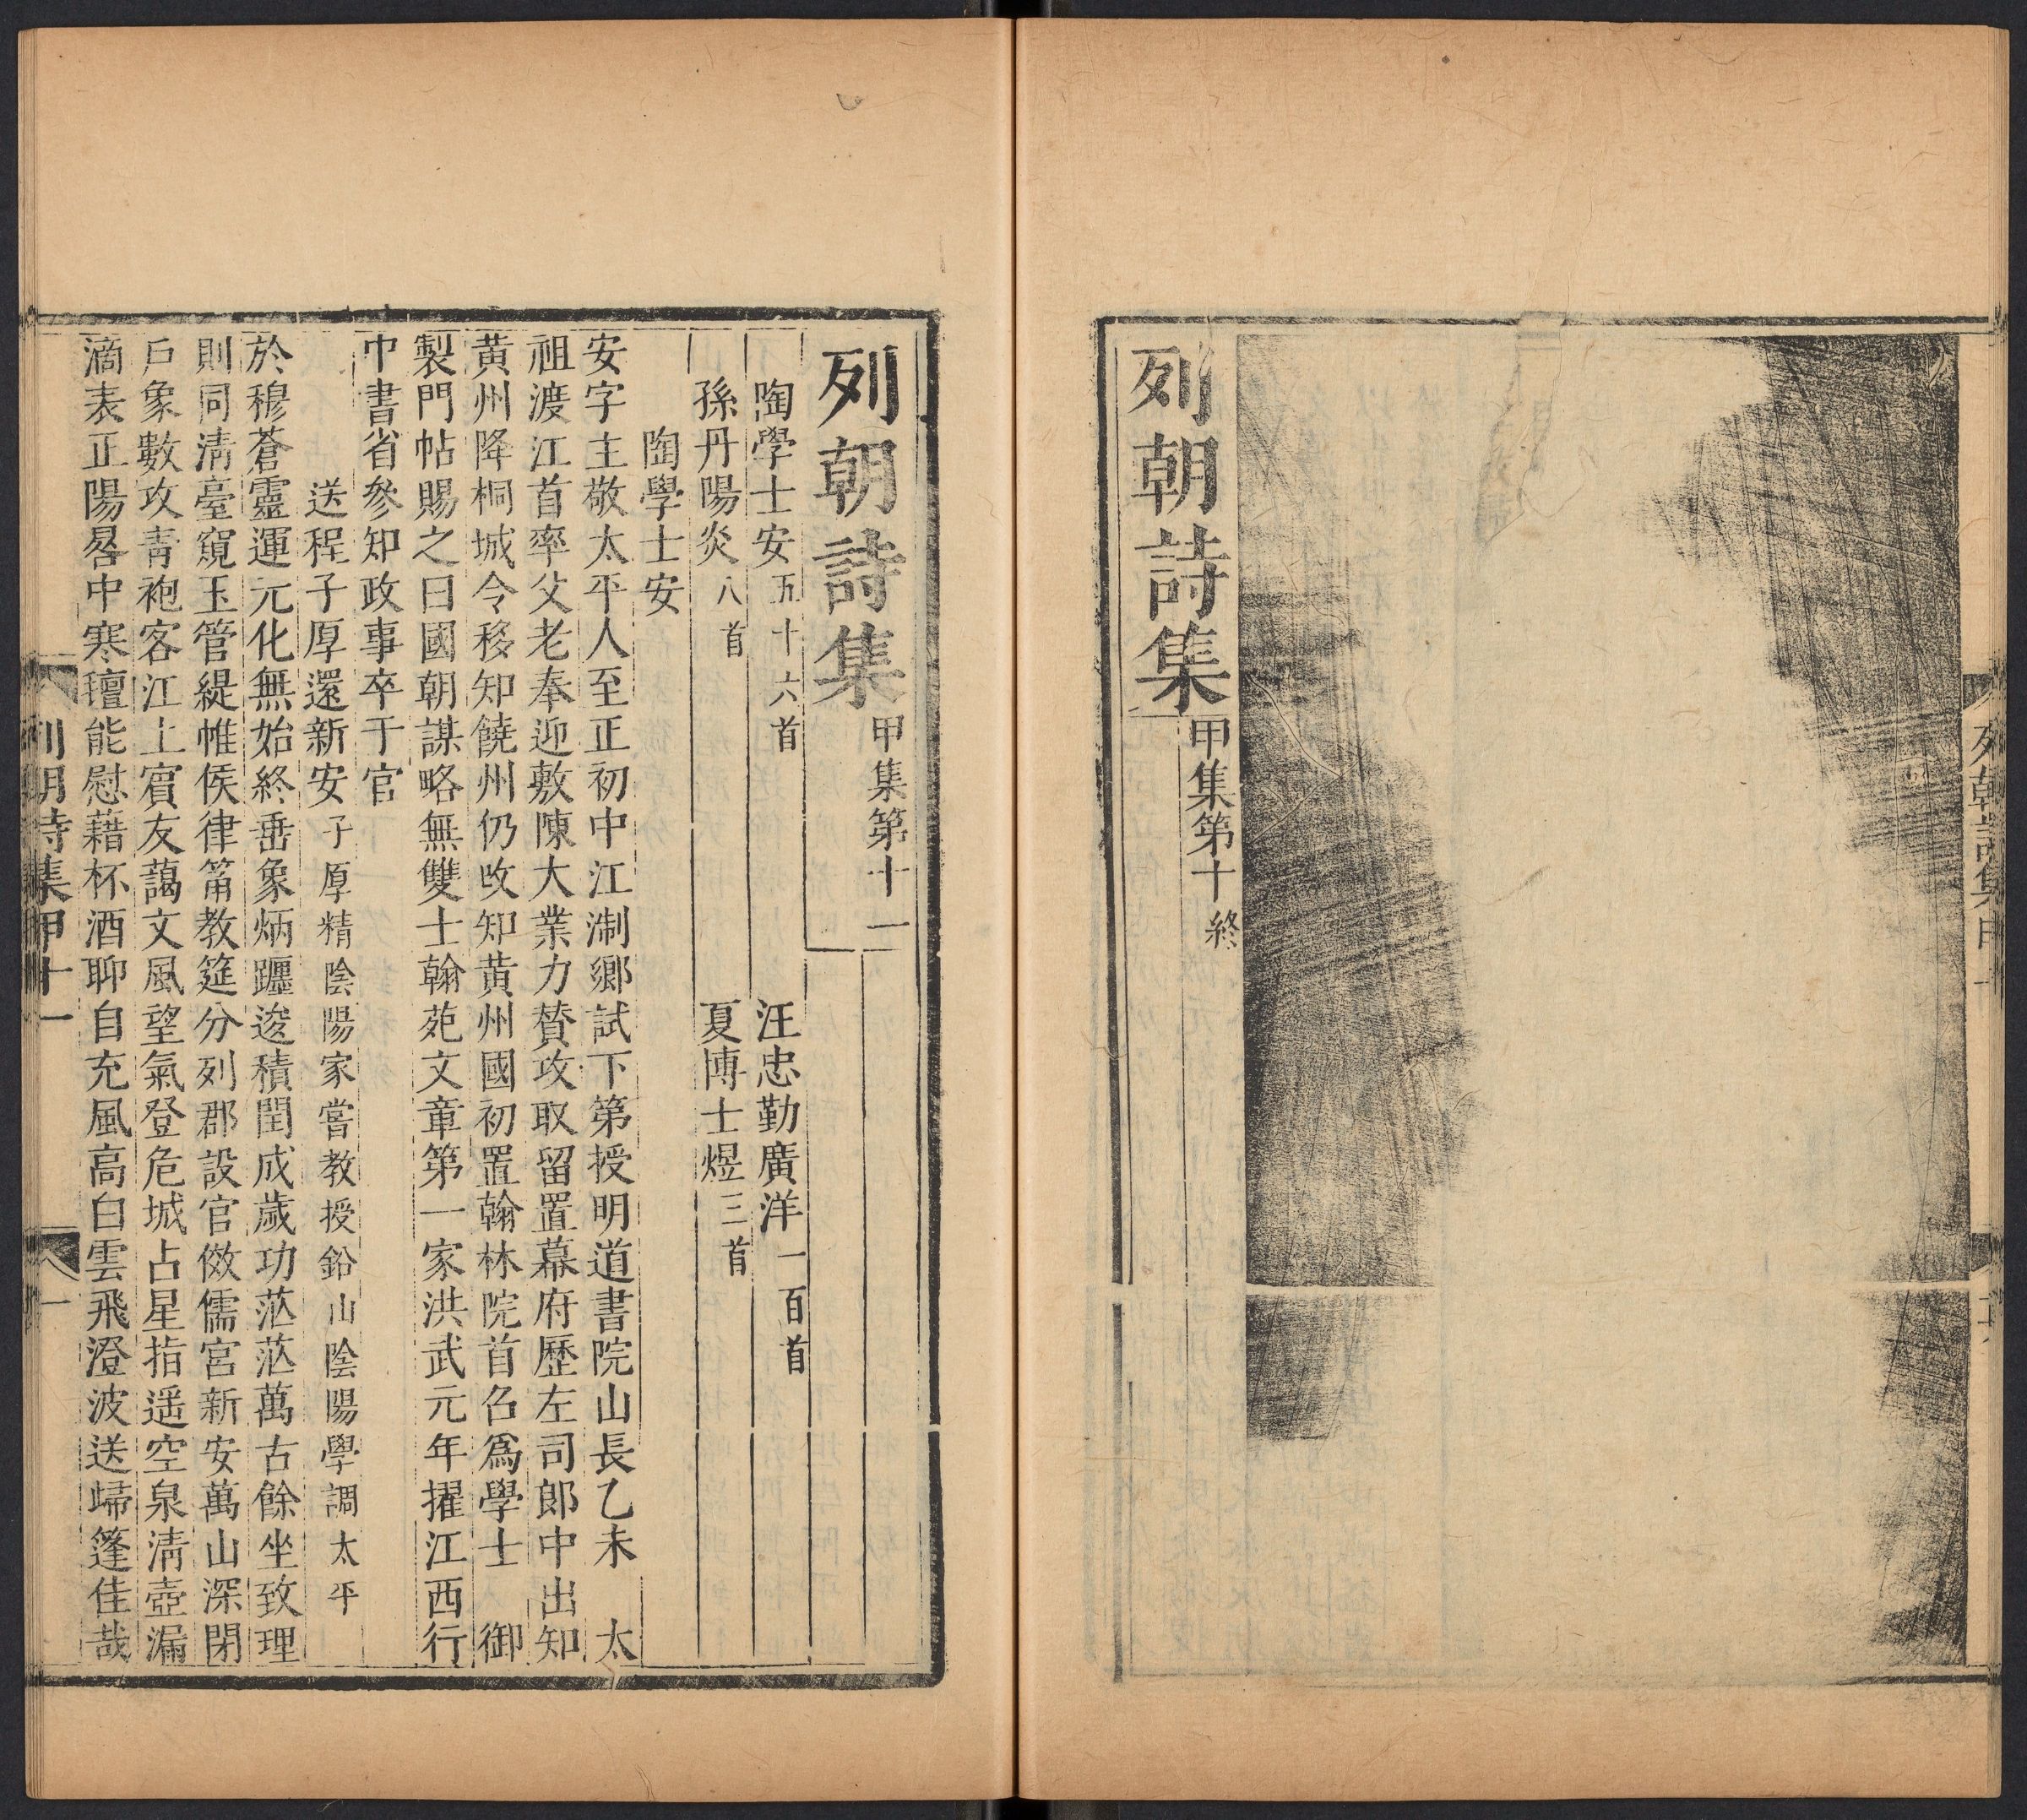 列朝詩集甲集第十終
列朝詩集甲集第十一
陶學士安五十六首 汪忠勤廣洋一百首
孫丹陽炎八首 夏博士煜三首
陶學士安
安字主敬太平人至正初中江淛鄉試下第授明道書院山長乙未 太
祖渡江首率父老奉迎敷陳大業力贊攻取留置幕府歷左司郎中出知
黄州降桐城令移知饒州仍改知黄州國初置翰林院首召爲學士 御
製門帖賜之曰國朝謀略無雙士翰苑文章第一家洪武元年擢江西行
中書省參知政事卒于官
送程子厚還新安子厚精陰陽家嘗教授鉛山陰陽學調太平
於穆蒼靈運元化無始終垂象炳躔逡積閏成歲功茫茫萬古餘坐致理
則同清臺窺玉管緹帷候律筩教筵分列郡設官倣儒宮新安萬山深閉
戶象數攻青袍客江上賓友藹文風望氣登危城占星指遥空泉清壺漏
滴表正陽晷中寒氊能慰藉杯酒聊自充風高白雲飛澄波送歸篷佳哉
列朝詩集甲十一
一